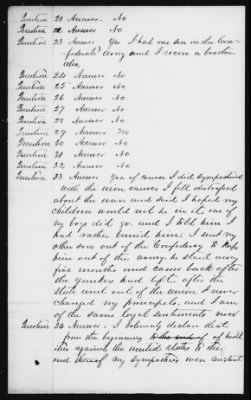 Question 21 Answer. No
Question 22 Answer No
Question 23 Answer Yes I had one son in the Con-
federate Army and I seven a brother
also.
Question 24 Answer No
Question 25 Answer No
Question 26 Answer No
Question 27 Answer No
Question 28 Answer No
Question 29 Answer No
Question 30 Answer No
Question 31 Answer No
Question 32 Answer No
Question 33 Answer Yes of cause I did sympathized
with the union causes I felt distressed
about the war and said I hoped my
children would not be in it, one of
my boys did go. and I told him I
had rather burried him; I sent my
other son out of the Confedercy to keep
him out of the army. he staid away
five months and came back after
the yankees had left, after the
state went out of the union I never
changed my principels. and I am
of the same loyal sentiments now
Question 34 Answer. I solemnly declare that
from the beginning to the end of of hostil
ities against the united states to the
end of my sympathies were constant